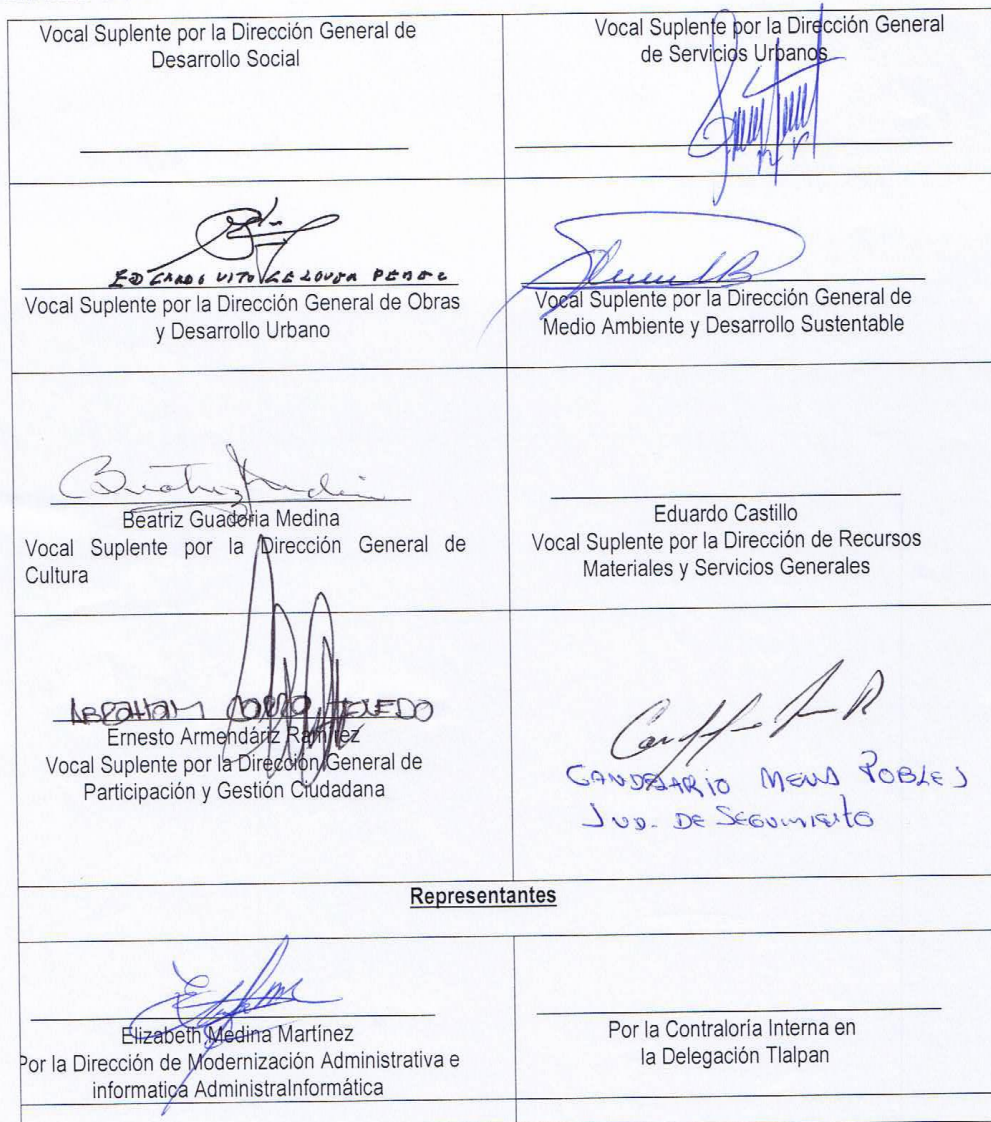 Vocal Suplente por la Dirección General de
Desarrollo Social
Vocal Suplente por la Dirección General
de Servicios Urbanos
Vocal Suplente por la Dirección General de Obras
y Desarrollo Urbano
Vocal Suplente por la Dirección General de
Medio Ambiente y Desarrollo Sustentable
Beatriz Guadoria Medina
Vocal Suplente por la Dirección General de
Cultura
Eduardo Castillo
Vocal Suplente por la Dirección de Recursos
Materiales y Servicios Generales
ABRAHAM
Ernesto Armendáriz Ramírez
Vocal Suplente por la Dirección General de
Participación y Gestión Ciudadana
CANDELARIO MENA ROBLES
JUD. DE SEGUIMIENTO
Representantes
Elizabeth Medina Martínez
Por la Dirección de Modernización Administrativa e
informatica AdministraInformática
Por la Contraloría Interna en
la Delegación Tlalpan